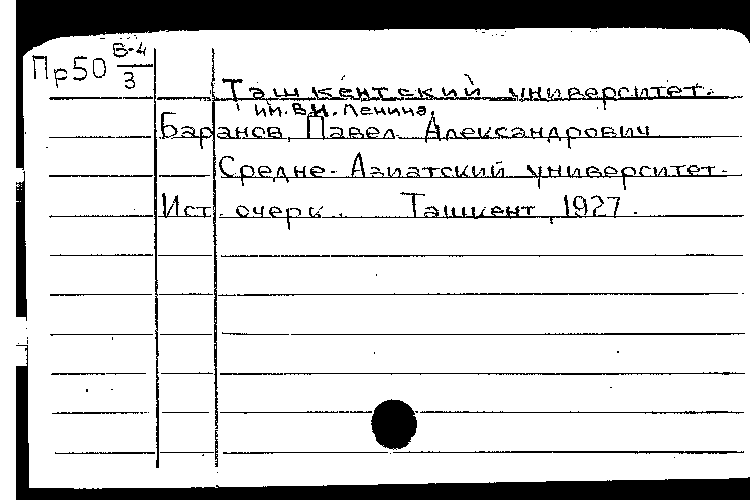 Пр50 В-4/3
Ташкентский университет.
им. В.И. Ленина.
Баранов, Павел Александрович
Средне-Азиатский университет.
Ист. очерк. Ташкент, 1927.